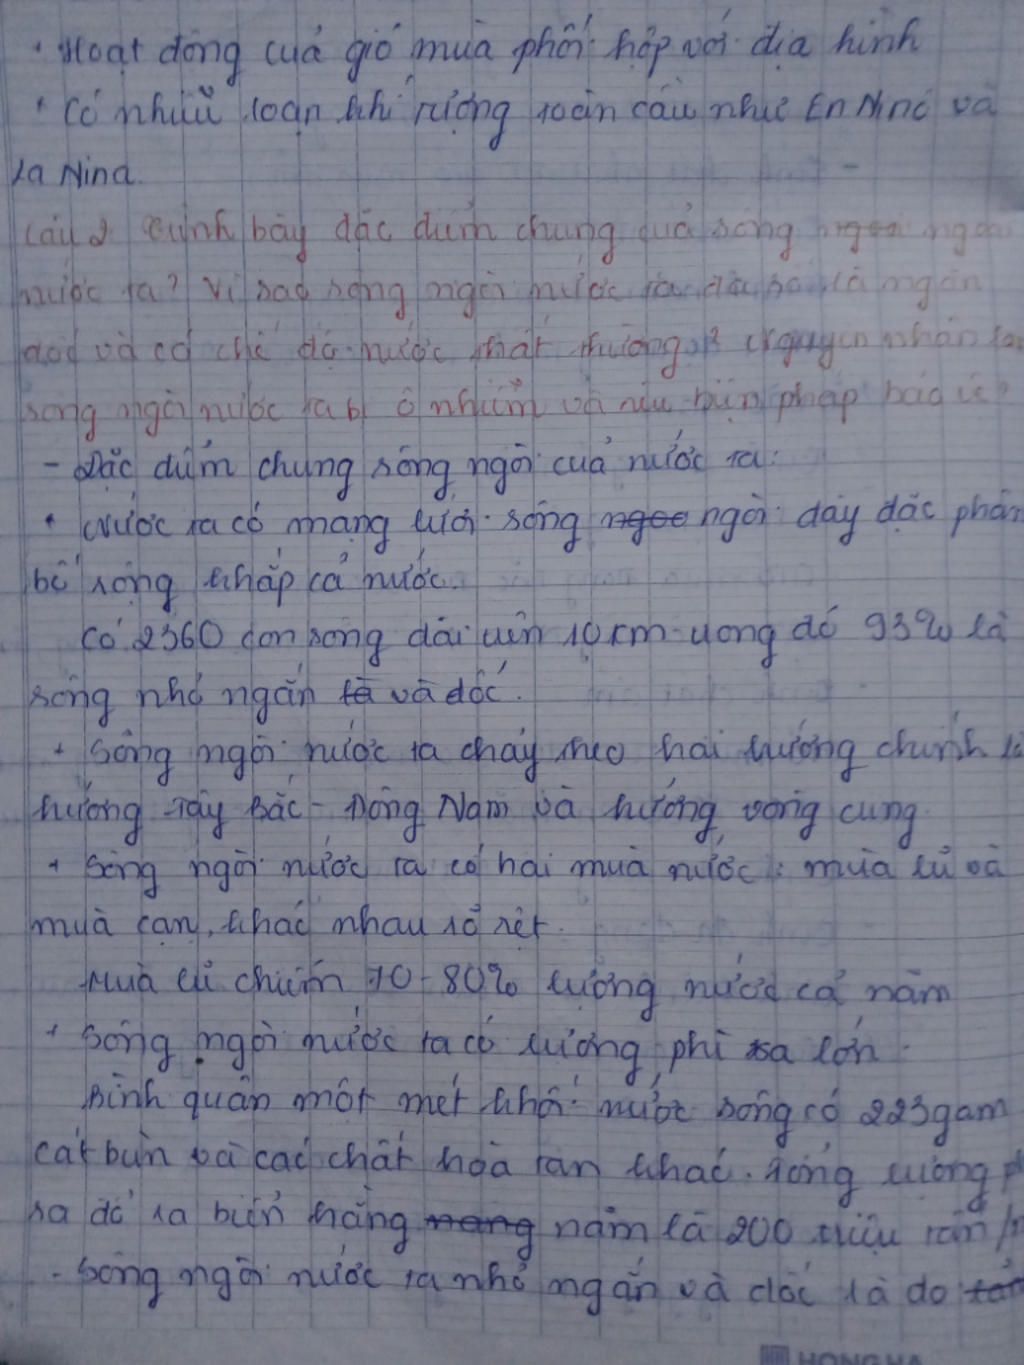 + Hoạt động của gió mùa phối hợp với địa hình
+ Có nhiễu loạn khí tượng toàn cầu như En Nino và
La Nina.
Câu 2 Trình bày đặc điểm chung của sông ngòi
nước ta? Vì sao sông ngòi nước ta đa số là ngắn
dốc và có chế độ nước thất thường? Nguyên nhân làm
sông ngòi nước ta bị ô nhiễm và nêu biện pháp bảo vệ?
- Đặc điểm chung sông ngòi của nước ta:
+ Nước ta có mạng lưới sông ngòi dày đặc phân
bố rộng khắp cả nước.
Có 2360 con sông dài trên 10 km trong đó 93% là
sông nhỏ ngắn và dốc.
+ Sông ngòi nước ta chảy theo hai hướng chính là
hướng Tây Bắc - Đông Nam và hướng vòng cung
+ Sông ngòi nước ta có hai mùa nước: mùa lũ và
mùa cạn, khác nhau rõ rệt.
Mùa lũ chiếm 70-80% lượng nước cả năm
+ Sông ngòi nước ta có lượng phù sa lớn.
Bình quân một mét khối nước sông có 223gam
cát bùn và các chất hòa tan khác. Tổng lượng phù
sa đổ ra biển hằng năm là 200 triệu tấn/
- Sông ngòi nước ta nhỏ ngắn và dốc là do
HONG HA